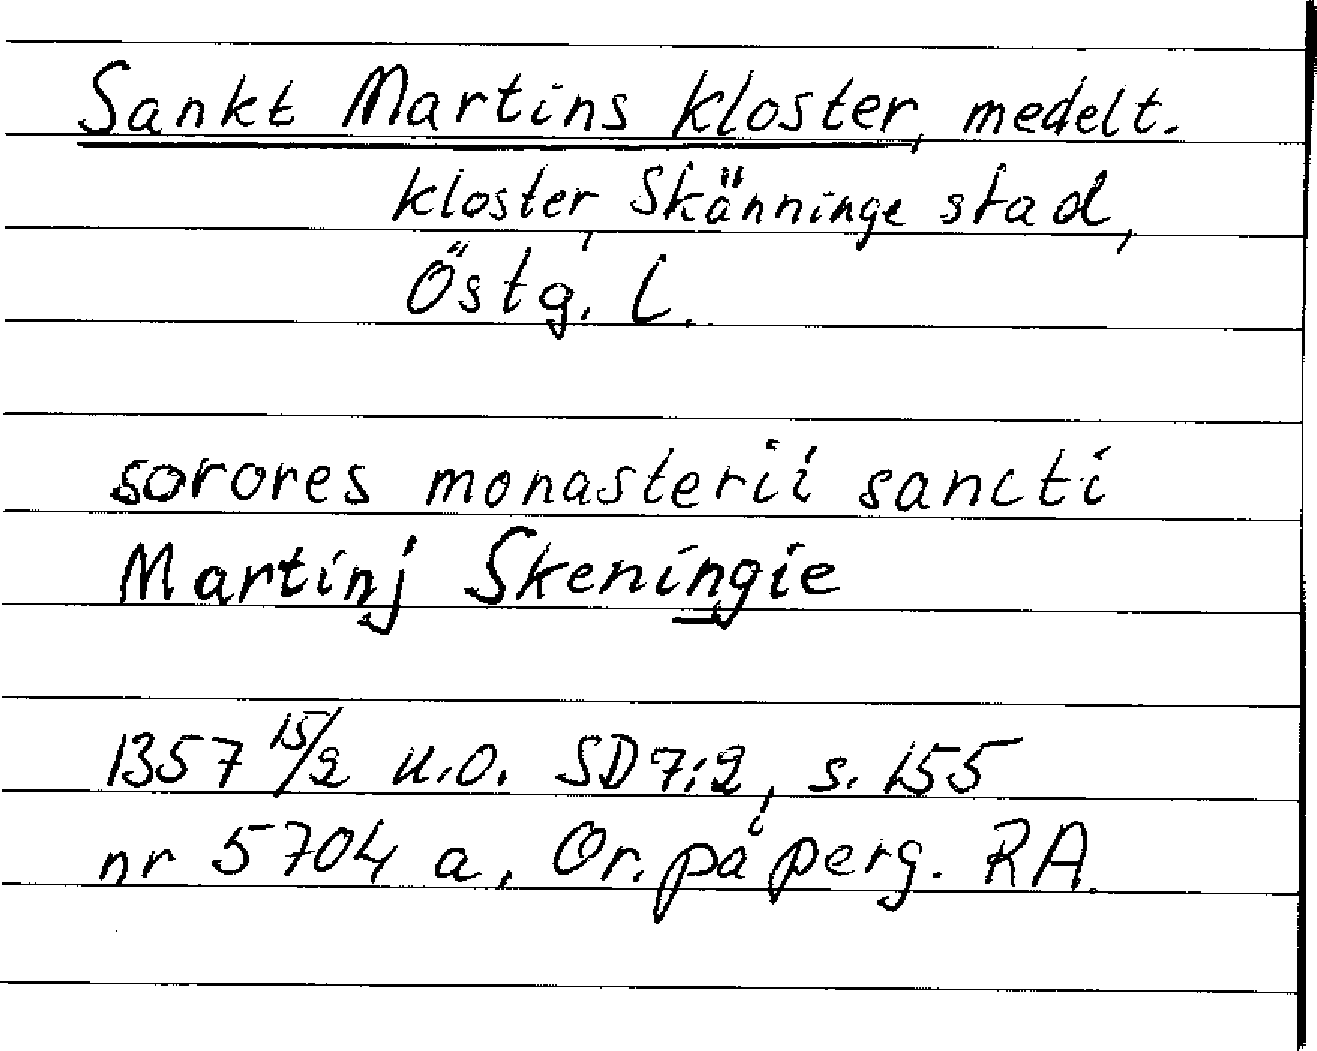 Sankt Martins kloster, medelt.
kloster, Skänninge stad,
Östg. L.
sorores monasterii sancti
Martinj Skeningie
1357 15/2 u.o. SD 7:2, s. 155
nr 5704 a, Or. på perg. RA.